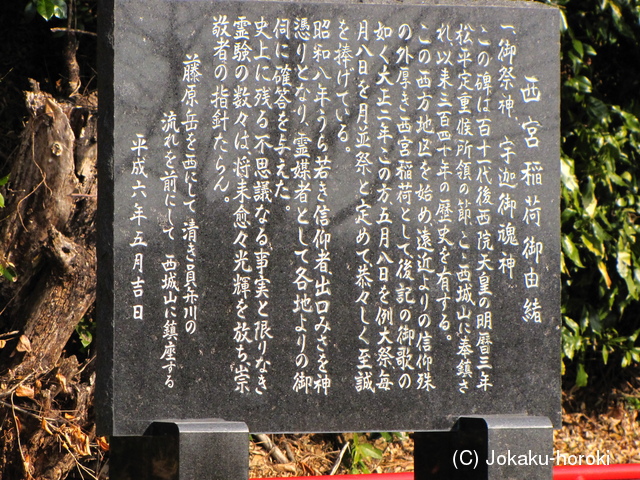 西宮稲荷御由緒
一、御祭神、宇迦御魂神
この碑は百十一代後西院天皇の明暦三年
松平定重候所領の節、こゝ西城山に奉鎮さ
れ以来三百四十年の歴史を有する。
この西方地区を始め遠近よりの信仰殊
の外厚き西宮稲荷として後記の御歌の
如く大正二年この方五月八日を例大祭毎
月八日を月並祭と定めて恭々しく至誠
を捧げている。
昭和八年うら若き信仰者出口みさを神
憑りとなり、霊媒者として各地よりの御
伺に確答を与えた。
史上に残る不思議なる事実と限りなき
霊験の数々は、将来愈々光輝を放ち崇
敬者の指針たらん。
藤原岳を西にして清き員弁川の
流れを前にして西城山に鎮座する
平成六年五月吉日
(C) Jokaku-horoki